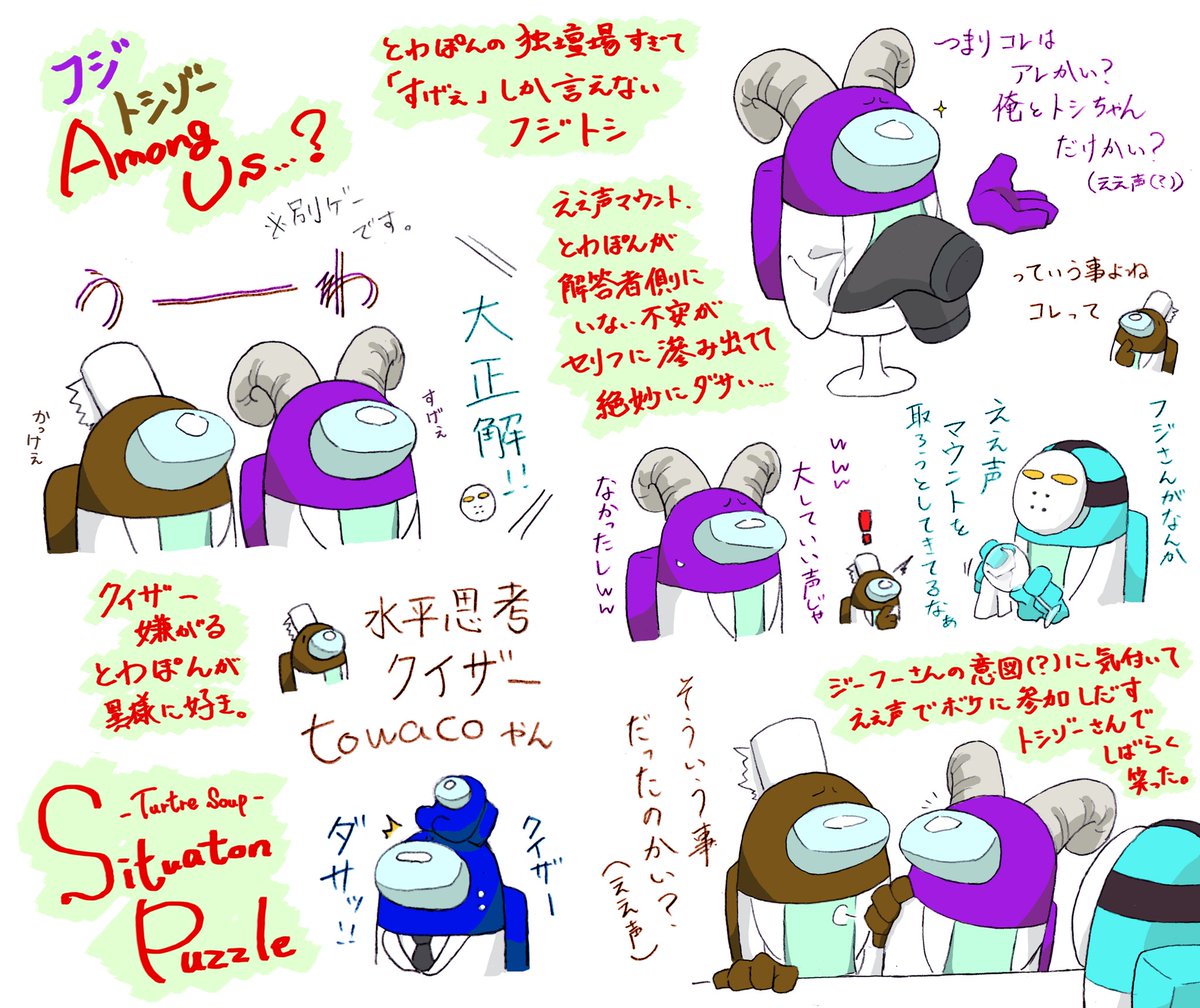 フジ
トシゾー
Among
Us...?
※別ゲー
です。
とわぽんの独壇場すぎて
「すげぇ」しか言えない
フジトシ
つまりコレは
アレかい?
俺とトシちゃん
だけかい?
(ええ声(?))
っていう事よね
コレって
ええ声マウント.
とわぽんが
解答者側に
いない不安が
セリフに滲み出てて
絶妙にダサい...
うーーわ
かっけぇ
すげぇ
大正解!!
フジさんがなんか
ええ声
マウントを
取ろうとしてきてるなぁ
www
大していい声じゃ
なかったしww
!
クイザー
嫌がる
とわぽんが
異様に好き。
水平思考
クイザー
towacoやん
ジーフーさんの意図(?)に気付いて
ええ声でボケに参加しだす
トシゾーさんで
しばらく
笑った。
そういう事
だったのかい?
(ええ声)
-Turtre Soup-
Situaton
Puzzle
クイザー
ダサッ!!